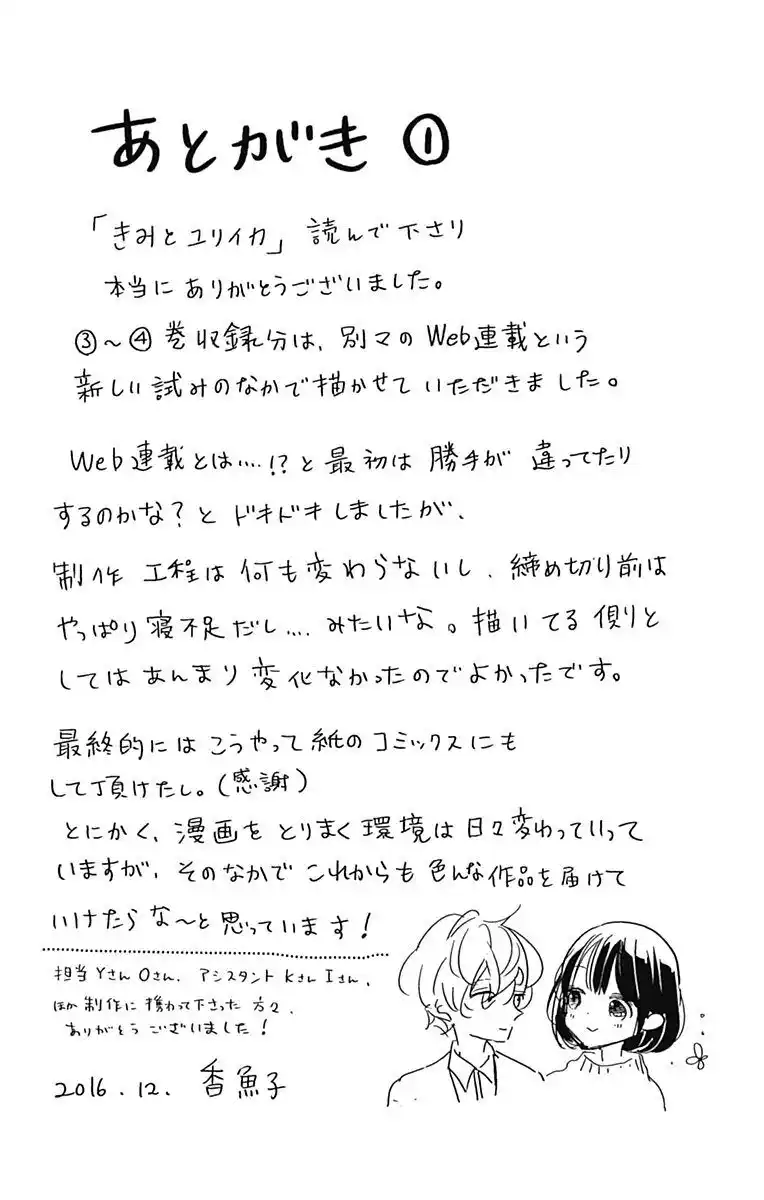 あとがき①
「きみとユリイカ」読んで下さり
本当にありがとうございました。
③〜④巻収録分は、別マのWeb連載という
新しい試みのなかで描かせていただきました。
Web連載とは…!?と最初は勝手が違ってたり
するのかな?とドキドキしましたが、
制作工程は何も変わらないし、締め切り前は
やっぱり寝不足だし…みたいな。描いてる側と
してはあんまり変化なかったのでよかったです。
最終的にはこうやって紙のコミックスにも
して頂けたし。(感謝)
とにかく、漫画をとりまく環境は日々変わっていって
いますが、そのなかでこれからも色んな作品を届けて
いけたらな〜と思っています!
担当Yさん Oさん、アシスタント Kさん Iさん、
ほか制作に携わって下さった方々、
ありがとうございました!
2016.12. 香魚子